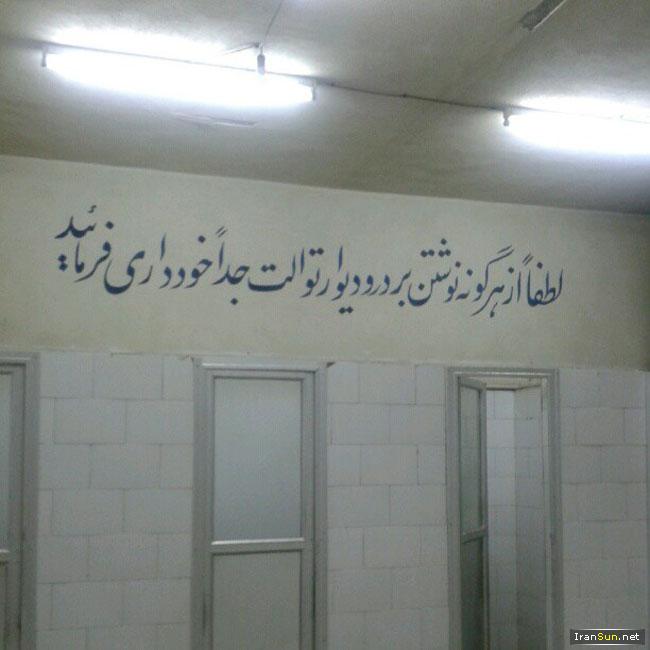 لطفاً از هرگونه نوشتن بر در و دیوار توالت جداً خودداری فرمائید
IranSun.net